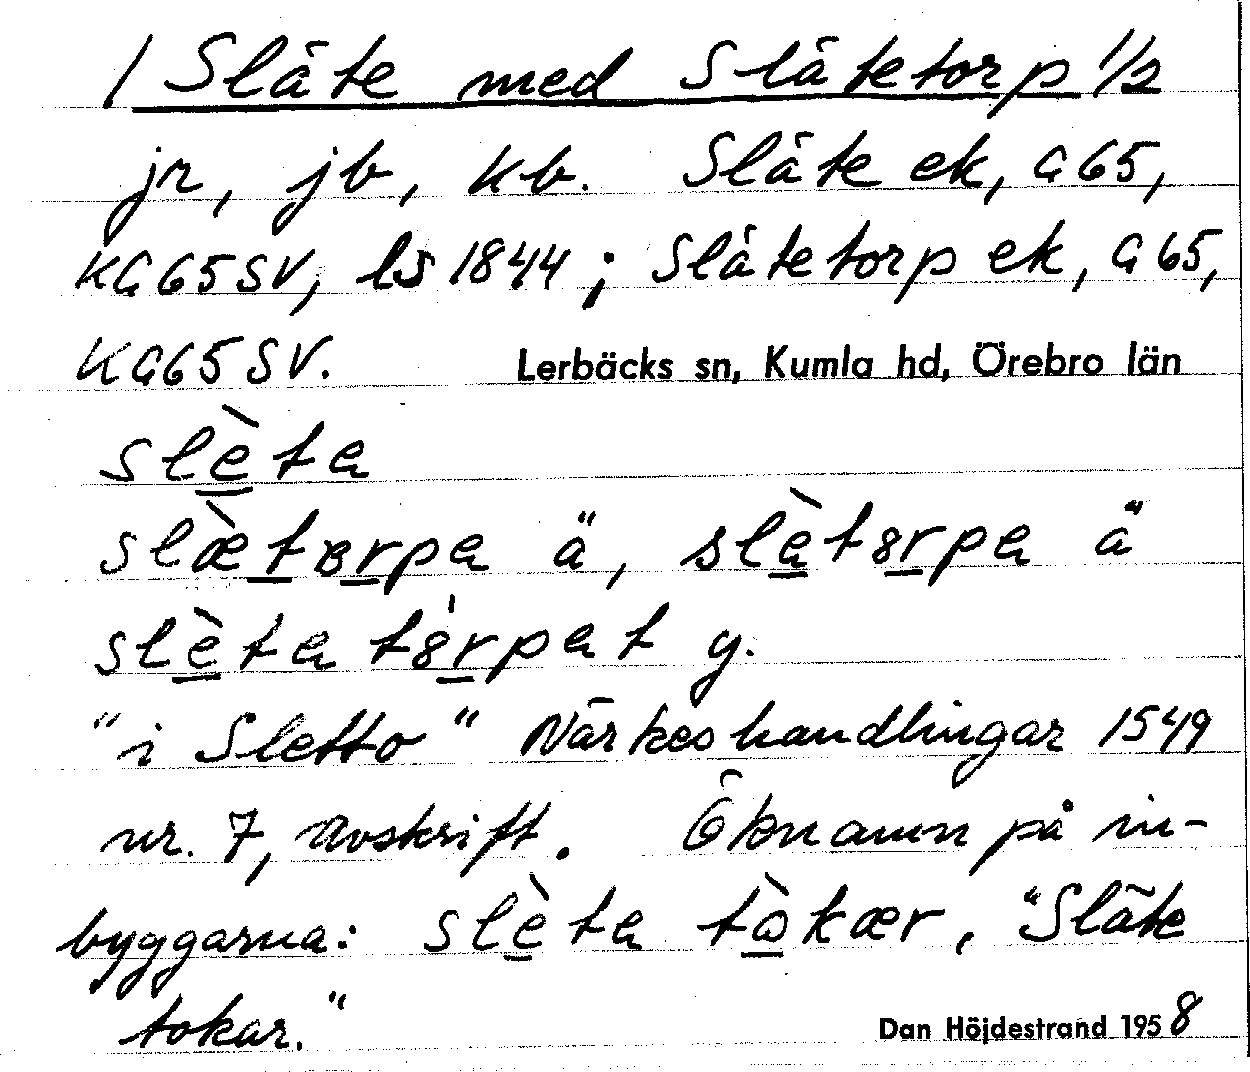 1 Släte med Slätetorp 1/2
jr, jb, kb. Släte ek, G65,
KG65SV, ls 1844; Slätetorp ek, G65,
KG65SV.
Lerbäcks sn, Kumla hd, Örebro län
slèta
slæ̀tɞrpa ä, slàtɞrpa ä
slèta tɞ́rpat y.
"i Sletto" Närkeshandlingar 1549
nr. 7, avskrift. Öknamn på in-
byggarna: slèta tòkær, "Släte
tokar."
Dan Höjdestrand 1958